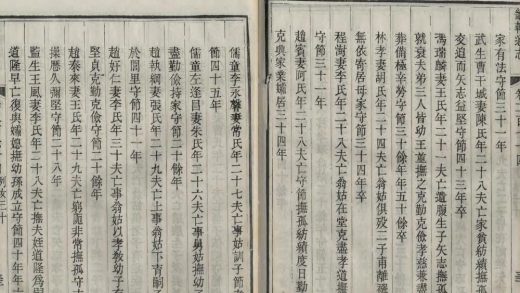 家有法守節三十一年
武生曹于城妻陳氏年二十八夫亡家貧紡績撫
迫而矢志益堅守節四十三年卒
馮瑞麟妻王氏年二十一夫亡遺腹生子矢志撫孤
就衰夫弟三人皆幼王並撫之克勤克儉孝慈兼盡
葬備極辛勞守節三十餘年年五十餘卒
林孝妻胡氏年二十四夫亡翁姑俱歿二子甫離
無依寄居母家守節三十四年
程澍妻李氏年二十八夫亡翁姑在堂克盡孝道撫
守節三十一年
趙賓妻阿氏年二十八夫亡守節撫孤紡績度日勤
克興家業孀居三十四年
儒童李永馨妻常氏年二十七夫亡事姑訓子節
守節四十五年
儒童左逢昌妻朱氏年二十六夫亡事舅姑撫幼子
盡勤儉持家守節二十餘年
趙執綱妻張氏年二十九夫亡上事翁姑下育嗣子
於閭里守節四十一年
趙好仁妻李氏年三十夫亡事翁姑以孝教幼子有
堅貞克勤克儉守節二十餘年
趙泰來妻王氏年二十九夫亡窮非常撫孤守
操歷久彌堅守節二十八年
監生王風妻李氏年二十八夫亡撫夫姪道隆爲嗣
道隆早亡復與孀媳撫幼孫成立守節四十年